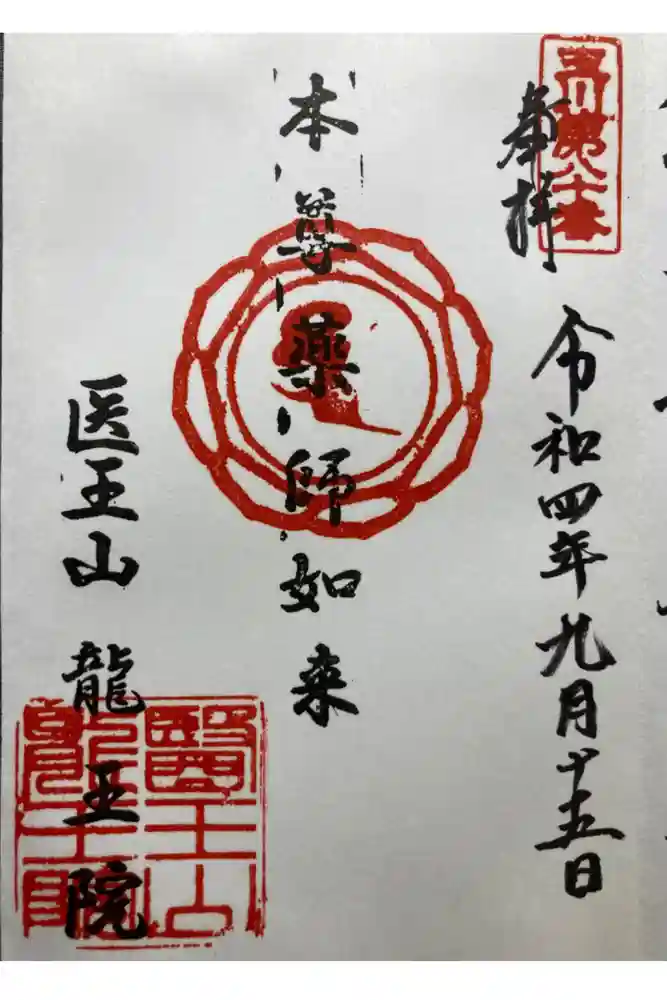 玉川第八十番
奉拝
令和四年九月十五日
本尊薬師如来
医王山龍王院
醫王山
龍王院